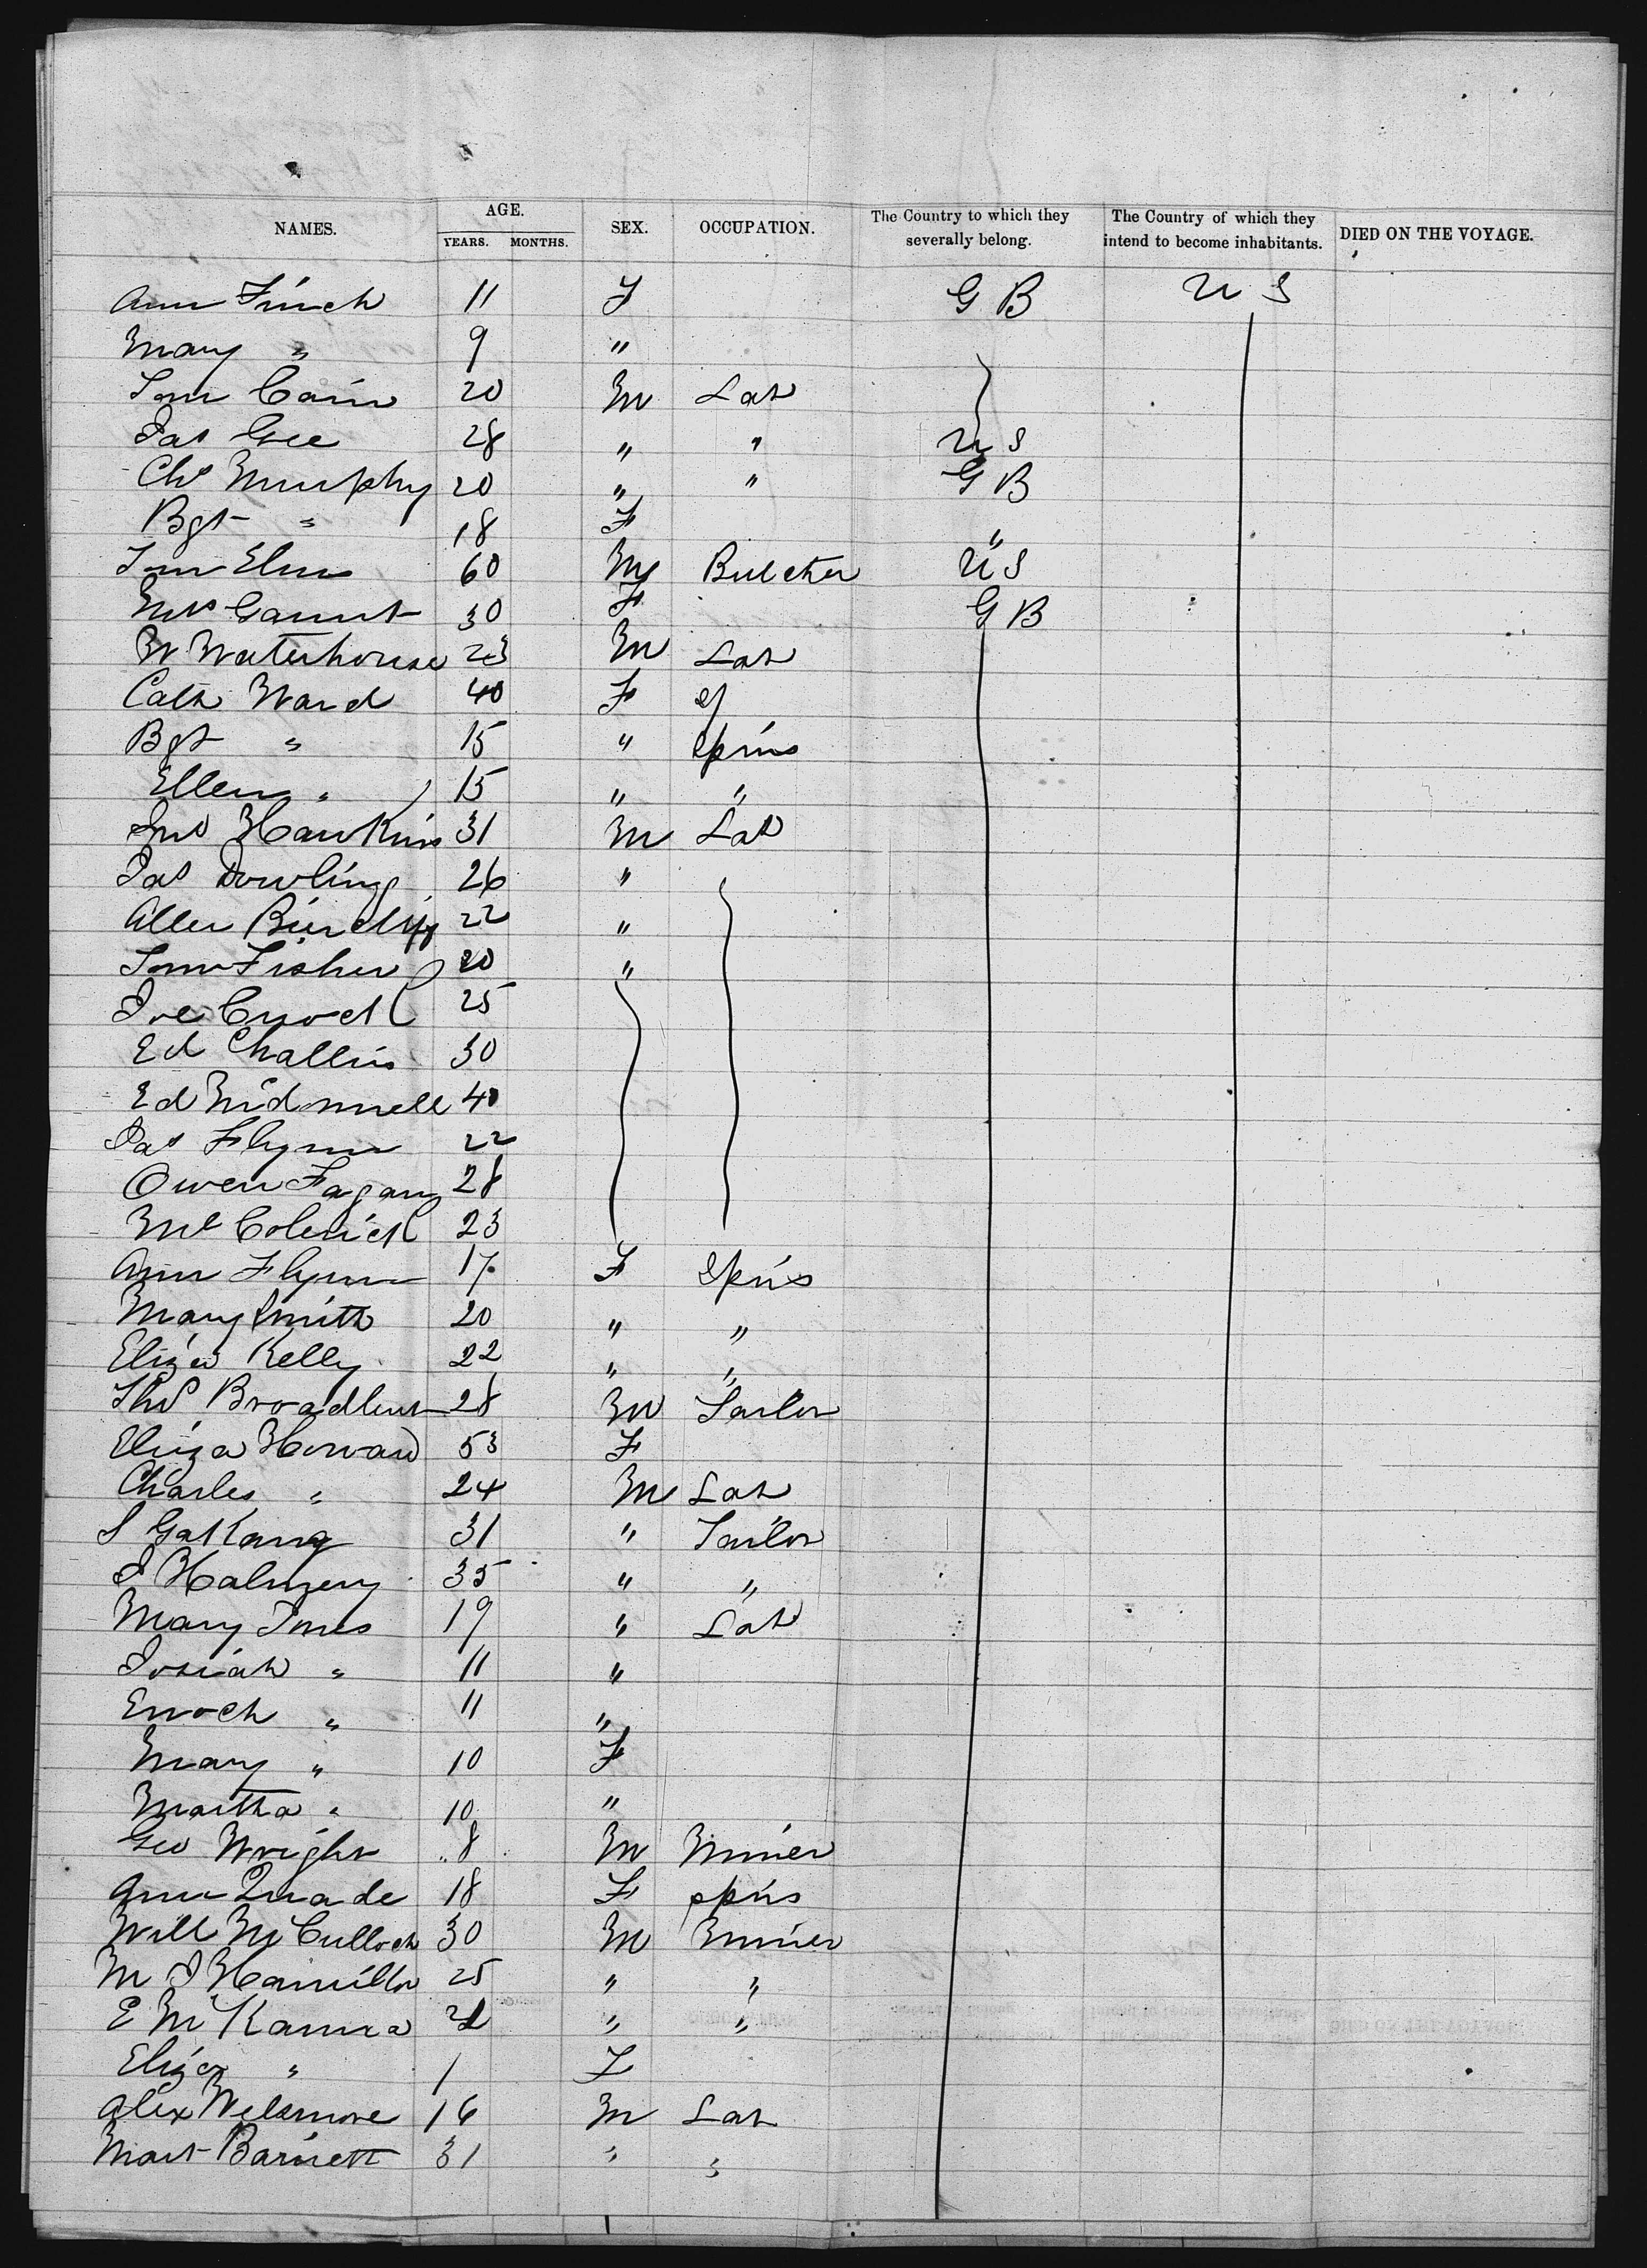 NAMES. AGE. YEARS. MONTHS. SEX. OCCUPATION. The Country to which they severally belong. The Country of which they intend to become inhabitants. DIED ON THE VOYAGE.
Ann Finch 11 F G B U S
Mary " 9 "
Tom Cain 20 M Lab
Pat Gee 28 " " U S
Chs Murphy 20 " " G B
Bgt " 18 F "
Tom Elms 60 M Butcher U S
Mrs Gaunt 30 F G B
W Waterhouse 23 M Lab
Cath Ward 40 F
Bgt " 15 " Spins
Ellen " 15 " "
Jno Hawkins 31 M Lab
Pat Dowling 26 "
22 "
Tom Fisher 20 "
Joe 25
Ed Challins 30
Ed 40
Pat Flynn 22
Owen Fagan 28
23
Ann Flynn 17 F Spins
Mary Smith 20 " "
Eliza Kelly 22 " "
Thos Broadbent 28 M Tailor
Eliza Howard 53 F
Charles " 24 M Lab
S 31 " Tailor
35 " "
Mary Jones 19 " Lab
Josiah " 11 "
Enoch " 11 "
Mary " 10 F
Martha " 10 "
Geo Wright 8 M Miner
Ann Quade 18 F Spins
Will McCulloch 30 M Miner
M J Hamilton 25 " "
E McKanna " "
Eliza " 1 F
Alex 16 M Lab
Mart Barnett 31 " "